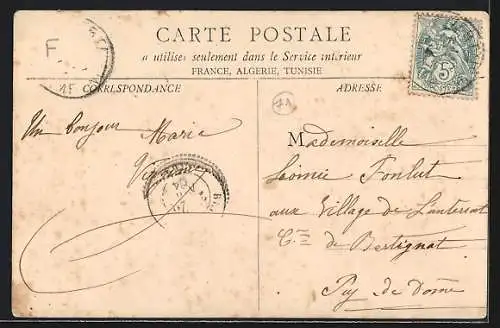 F
CARTE POSTALE
« utilisés seulement dans le Service intérieur
FRANCE, ALGERIE, TUNISIE
CORRESPONDANCE
ADRESSE
5
71
Un bonjour Maria
Mademoiselle
Fonlut
aux Village de
Cne de Bertignat
Puy de Dôme